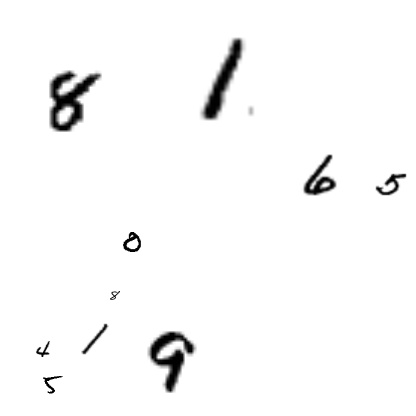 8 1
6 5
0
8
4 1 9
5